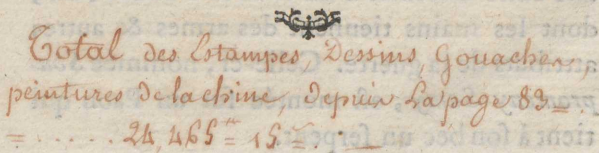 Total des Estampes, Dessins, Gouaches,
peintures de la chine, depuis la page 83 =
= ..... 24,465# 15s